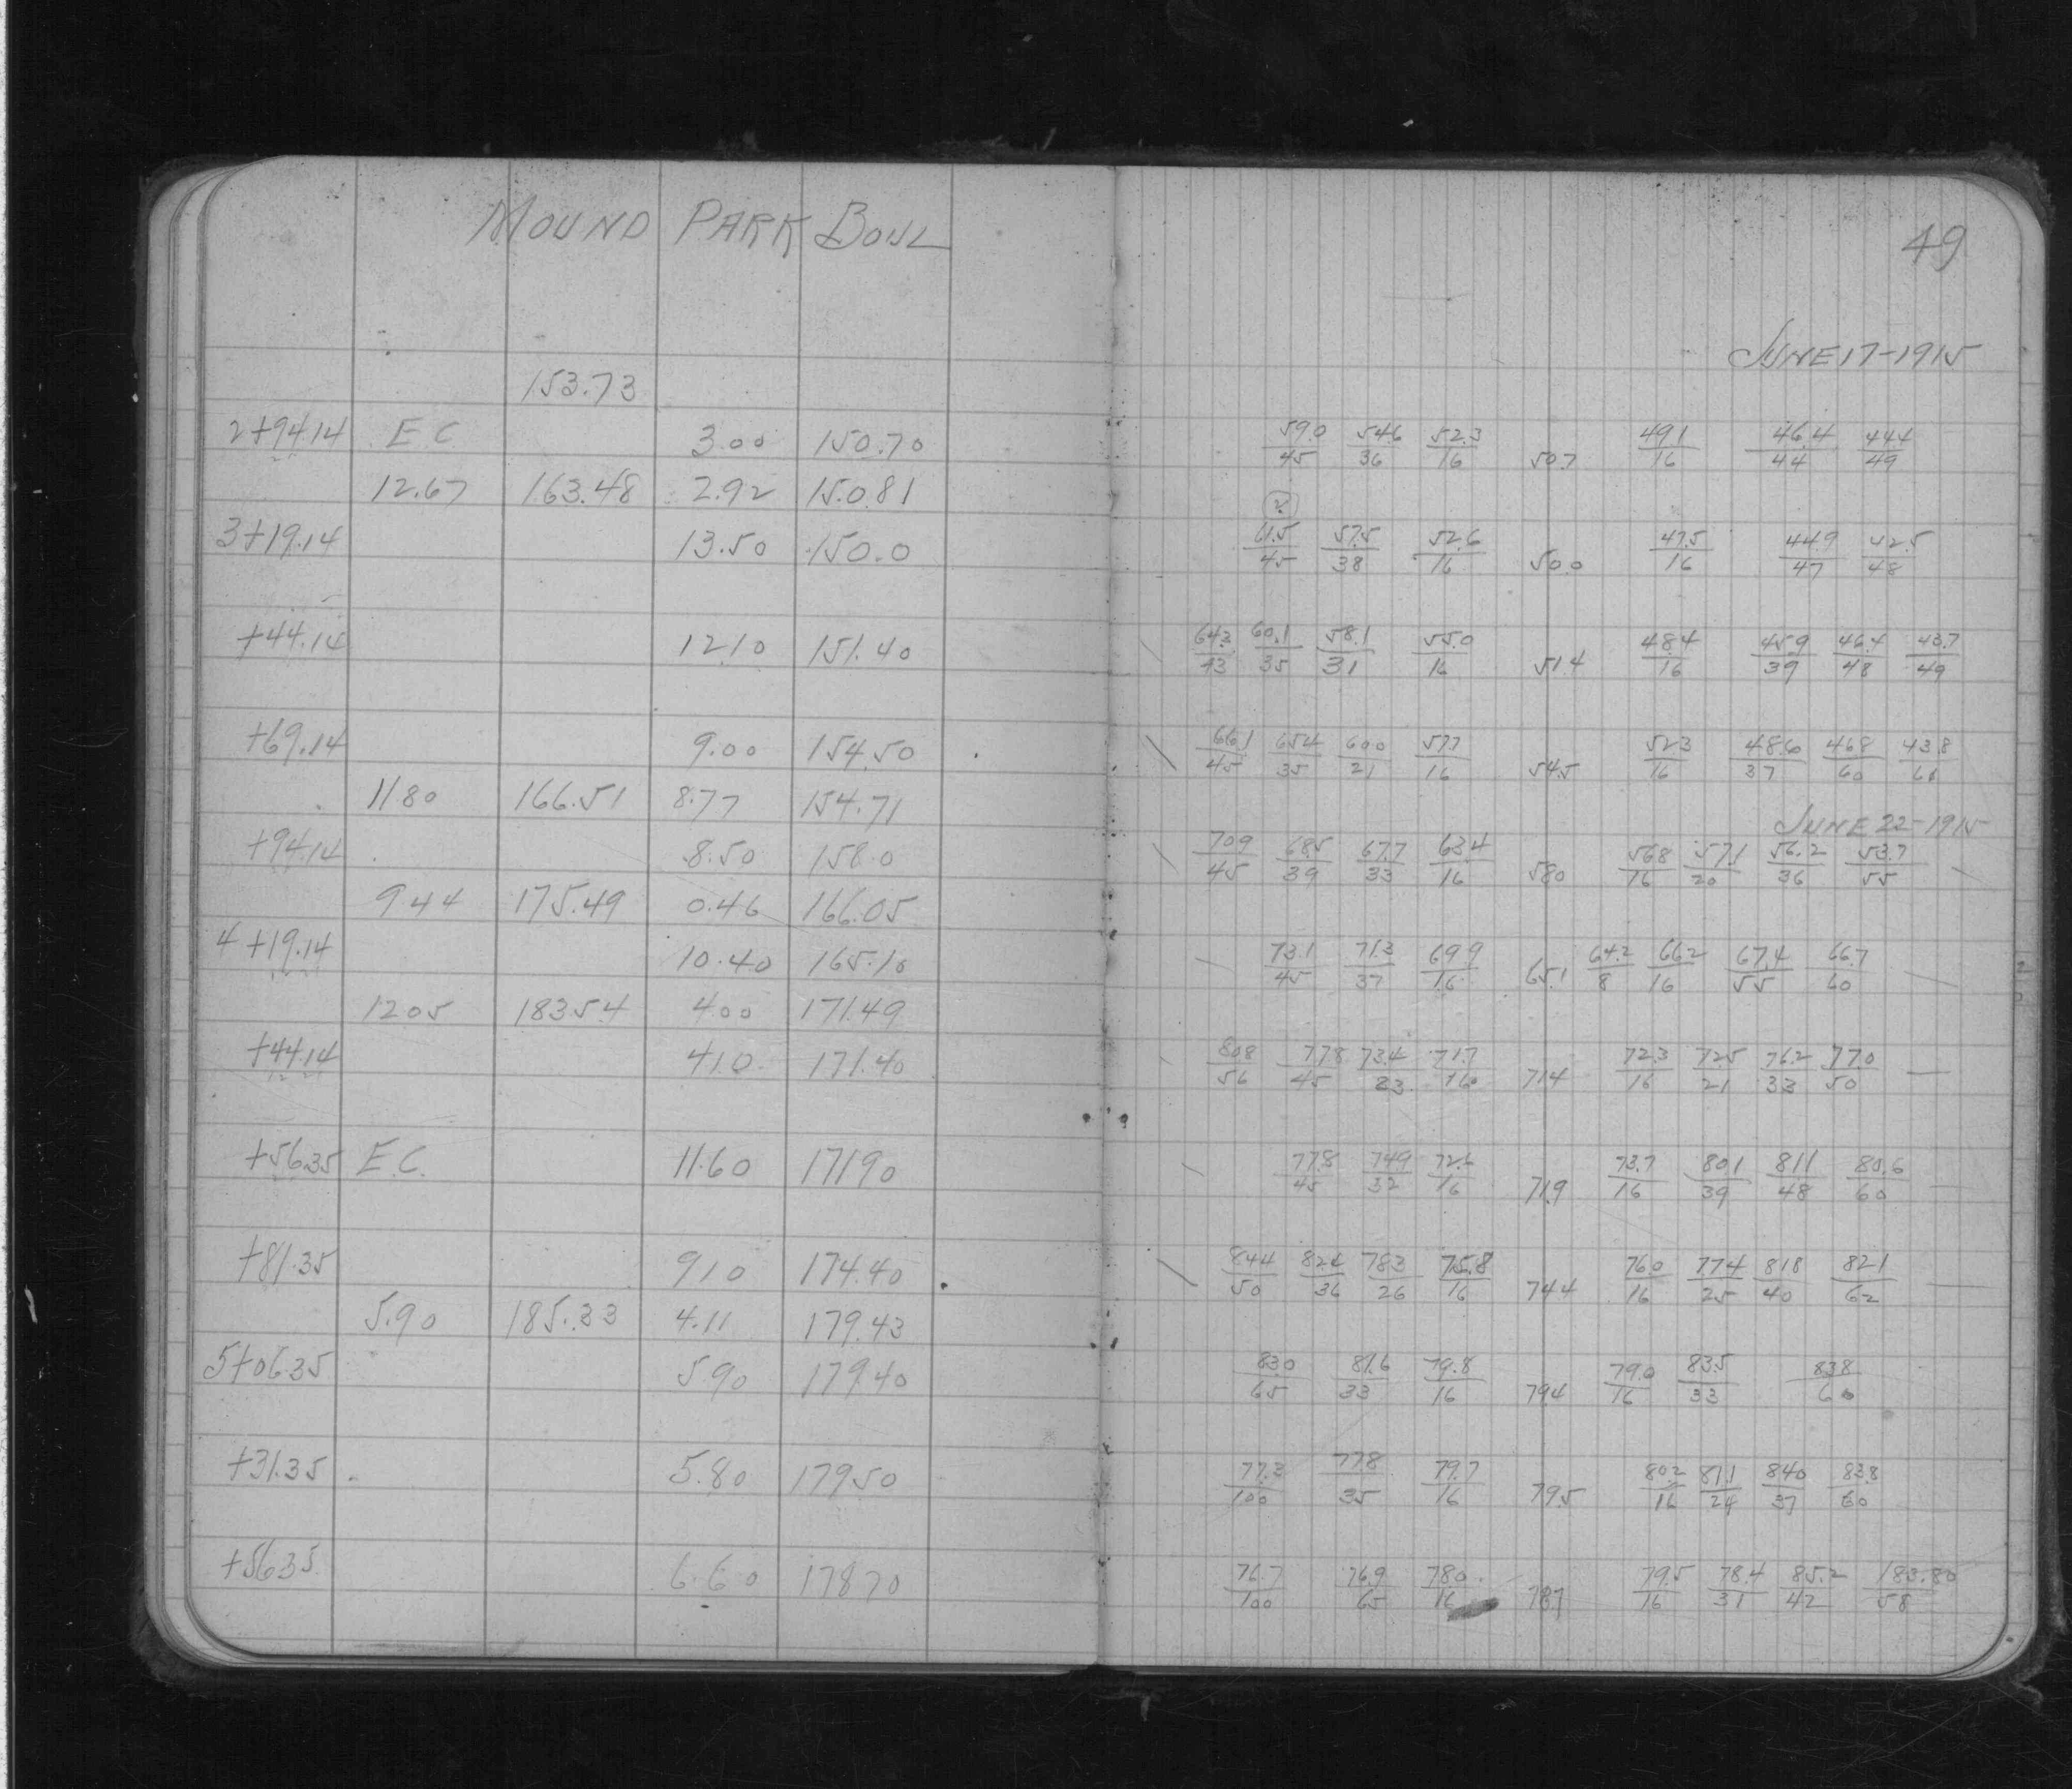 MOUND PARK BOUL
49
JUNE 17-1915
153.73
2+94.14 E C 3.00 150.70 59.0/45 54.6/36 52.3/16 50.7 49.1/16 46.4/44 44.4/49
12.67 163.48 2.92 150.81
3+19.14 13.50 150.0 61.5/45 57.5/38 52.6/16 50.0 47.5/16 44.9/47 42.5/48
+44.14 12.10 151.40 64.3/43 60.1/35 58.1/31 55.0/16 51.4 48.4/16 45.9/39 46.4/48 43.7/49
+69.14 9.00 154.50 66.1/45 65.4/35 60.0/21 57.7/16 54.5 52.3/16 48.6/37 46.8/60 43.8/61
11.80 166.51 8.77 154.71
JUNE 22-1915
+94.14 8.50 158.0 70.9/45 68.5/39 67.7/33 63.4/16 58.0 56.8/16 57.1/20 56.2/36 53.7/55
9.44 175.49 0.46 166.05
4+19.14 10.40 165.10 73.1/45 71.3/37 69.9/16 65.1 64.2/8 66.2/16 67.4/55 66.7/60
12.05 183.54 4.00 171.49
+44.14 4.10 171.40 80.8/56 77.8/45 73.4/23 71.7/16 71.4 72.3/16 72.5/21 76.2/33 77.0/50
+56.35 E.C. 11.60 171.90 77.8/45 74.9/32 72.6/16 71.9 73.7/16 80.1/39 81.1/48 80.6/60
+81.35 9.10 174.40 84.4/50 82.4/36 78.3/26 75.8/16 74.4 76.0/16 77.4/25 81.8/40 82.1/62
5.90 185.33 4.11 179.43
5+06.35 5.90 179.40 83.0/65 81.6/33 79.8/16 79.4 79.0/16 83.5/33 83.8/60
+31.35 5.80 179.50 77.3/100 77.8/35 79.7/16 79.5 80.2/16 81.1/24 84.0/37 83.8/60
+56.35 6.60 178.70 76.7/100 76.9/65 78.0/16 78.7 79.5/16 78.4/31 85.2/42 183.80/58